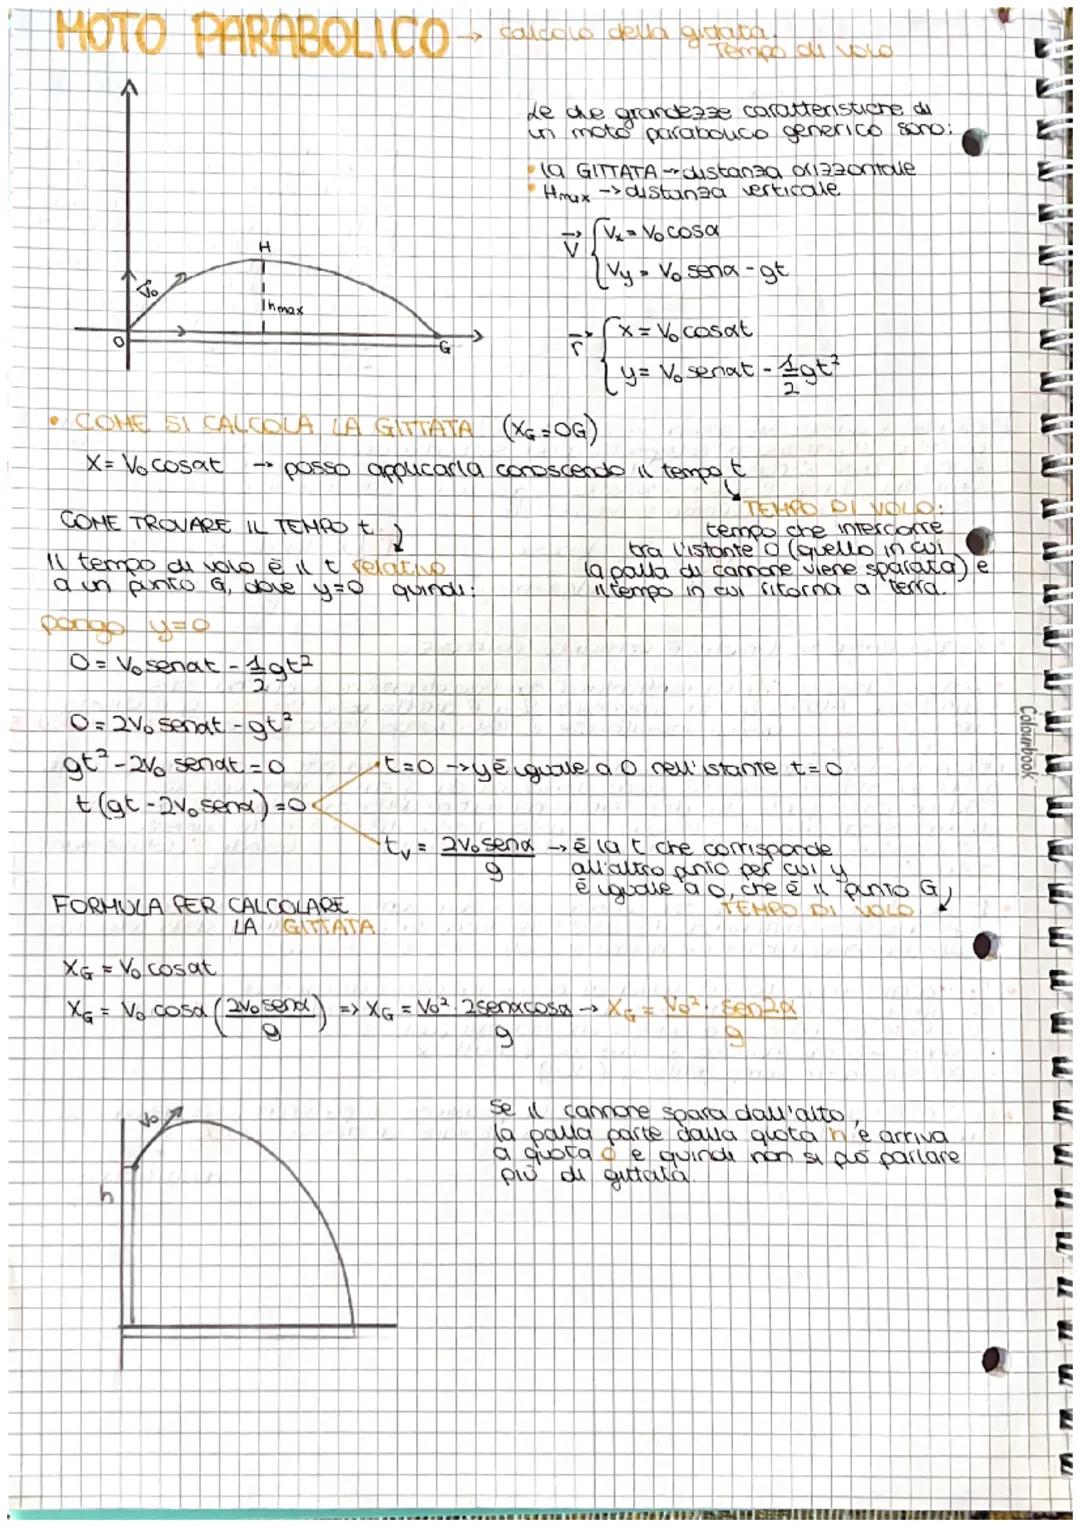 MOTO PARABOLICO → calcolo della gittata.
Tempo di volo
Le due grandezze caratteristiche di
un moto parabolico generico sono:
• la GITTATA → distanza orizzontale
• Hmax → distanza verticale
V⃗ { Vx = V₀ cosα
Vy = V₀ senα - gt
H
V⃗₀
hmax
O
G
r⃗ { x = V₀ cosαt
y = V₀ senαt - 1/2 gt²
• COME SI CALCOLA LA GITTATA (XG = OG)
X = V₀ cosαt → posso applicarla conoscendo il tempo t
TEMPO DI VOLO:
tempo che intercorre
tra l'istante 0 (quello in cui
la palla di cannone viene sparata) e
il tempo in cui ritorna a terra.
COME TROVARE IL TEMPO t
Il tempo di volo è il t relativo
a un punto G, dove y=0 quindi:
pongo y=0
0 = V₀ senαt - 1/2 gt²
0 = 2V₀ senαt - gt²
gt² - 2V₀ senαt = 0
t (gt - 2V₀ senα) = 0
t=0 → y è uguale a 0 nell'istante t=0
tv = 2V₀ senα / g → è la t che corrisponde
all'altro punto per cui y
è uguale a 0, che è il punto G
TEMPO DI VOLO
FORMULA PER CALCOLARE
LA GITTATA
XG = V₀ cosαt
XG = V₀ cosα (2V₀ senα / g) => XG = V₀² 2senαcosα / g → XG = V₀² · sen2α / g
V₀
h
Se il cannone spara dall'alto,
la palla parte dalla quota h e arriva
a quota 0 e quindi non si può parlare
più di gittata.
Colourbook